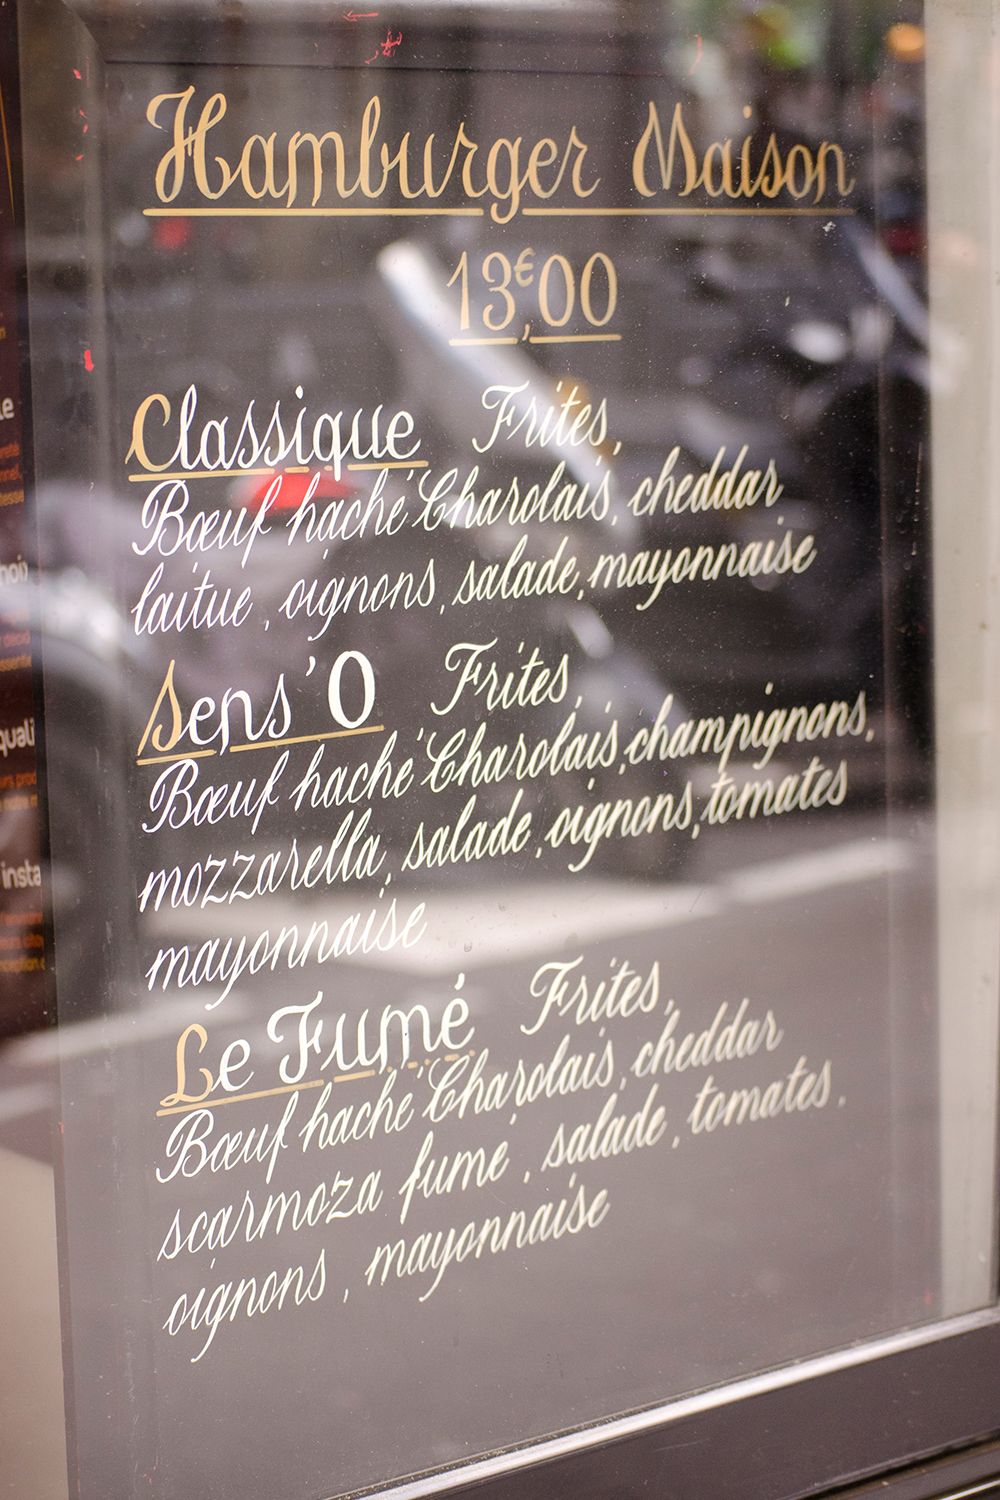 Hamburger Maison
13€,00
Classique Frites,
Bœuf haché Charolais, cheddar
laitue, oignons, salade, mayonnaise
Sens'O Frites,
Bœuf haché Charolais, champignons,
mozzarella, salade, oignons, tomates
mayonnaise
Le Fumé Frites,
Bœuf haché Charolais, cheddar
scarmoza fumé, salade, tomates,
oignons, mayonnaise